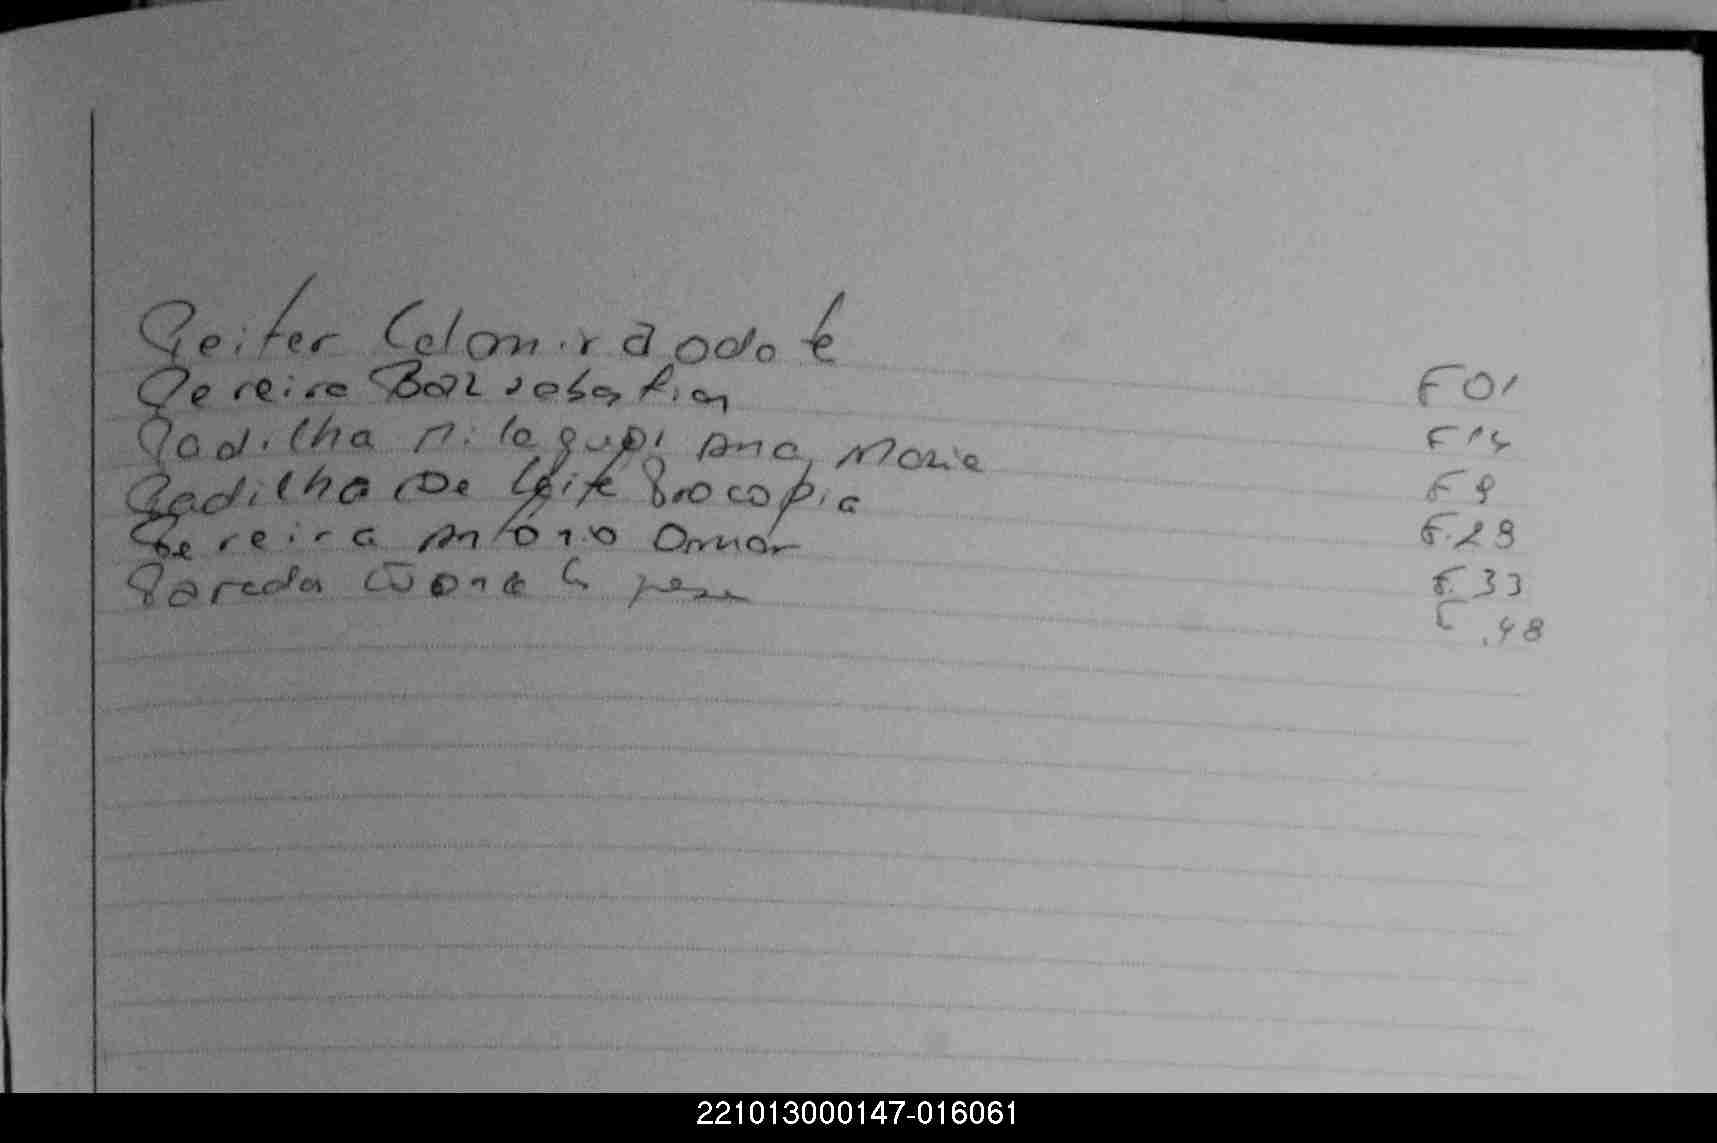 Peiter Colomira odote F 01
Pereira Baz sebastian F 14
Padilha Milagupi Ana Maria F 9
Padilha De Leite Procopia F.29
Pereira Antonio Omar F.33
Pareda F.48
221013000147-016061